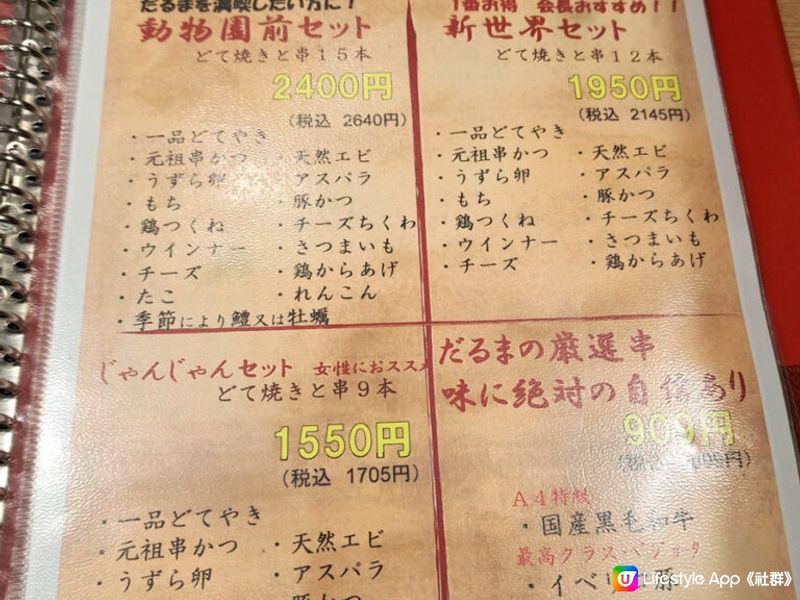 だるまを満喫したい方に！
動物園前セット
どて焼きと串１５本
2400円
(税込 2640円)
・一品どてやき
・元祖串かつ ・天然エビ
・うずら卵 ・アスパラ
・もち ・豚かつ
・鶏つくね ・チーズちくわ
・ウインナー ・さつまいも
・チーズ ・鶏からあげ
・たこ ・れんこん
・季節により鱧又は牡蠣
1番お得 会長おすすめ！！
新世界セット
どて焼きと串１２本
1950円
(税込 2145円)
・一品どてやき
・元祖串かつ ・天然エビ
・うずら卵 ・アスパラ
・もち ・豚かつ
・鶏つくね ・チーズちくわ
・ウインナー ・さつまいも
・チーズ ・鶏からあげ
じゃんじゃんセット 女性におススメ
どて焼きと串９本
1550円
(税込 1705円)
・一品どてやき
・元祖串かつ ・天然エビ
・うずら卵 ・アスパラ
豚かつ
だるまの厳選串
味に絶対の自信あり
909円
A４特級
・国産黒毛和牛
最高クラスベジョータ
・イベ 豚
Lifestyle App《社群》